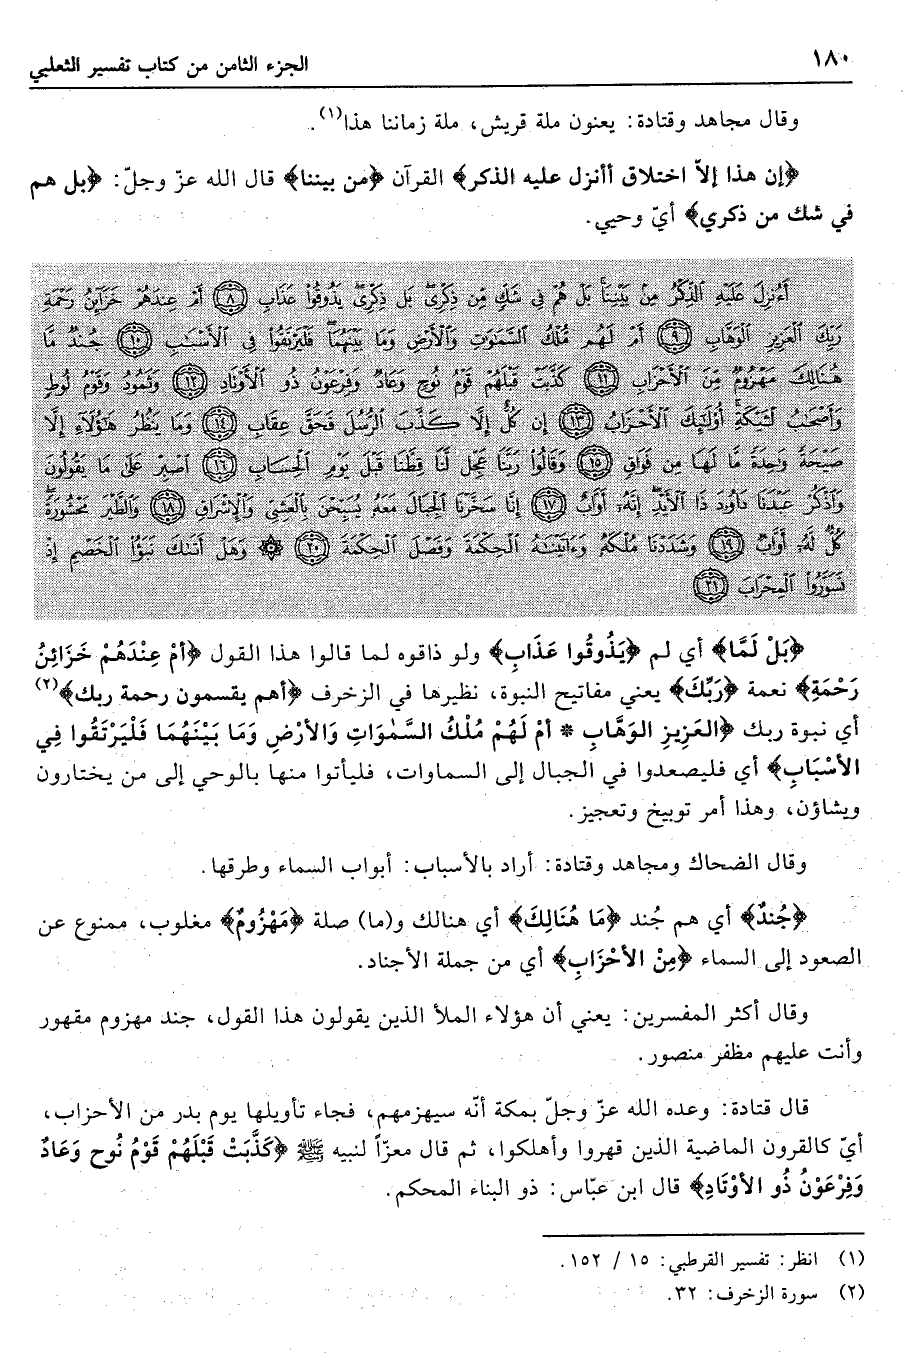 ١٨٠ الجزء الثامن من كتاب تفسير الثعلبي
وقال مجاهد وقتادة: يعنون ملة قريش، ملة زماننا هذا(١).
﴿إن هذا إلاّ اختلاق أأنزل عليه الذكر﴾ القرآن ﴿من بيننا﴾ قال الله عزّ وجلّ: ﴿بل هم
في شك من ذكري﴾ أيّ وحيي.
أَءُنزِلَ عَلَيْهِ الذِّكْرُ مِنْ بَيْنِنَا بَلْ هُمْ فِي شَكٍّ مِّن ذِكْرِي بَل لَّمَّا يَذُوقُوا عَذَابِ ٨ أَمْ عِندَهُمْ خَزَآئِنُ رَحْمَةِ
رَبِّكَ الْعَزِيزِ الْوَهَّابِ ٩ أَمْ لَهُم مُّلْكُ السَّمَوَتِ وَالْأَرْضِ وَمَا بَيْنَهُمَا فَلْيَرْتَقُوا فِي الْأَسْبَبِ ١٠ جُندٌ مَّا
هُنَالِكَ مَهْزُومٌ مِّنَ الْأَحْزَابِ ١١ كَذَّبَتْ قَبْلَهُمْ قَوْمُ نُوحٍ وَعَادٌ وَفِرْعَوْنُ ذُو الْأَوْنَادِ ١٢ وَثَمُودُ وَقَوْمُ لُوطٍ
وَأَصْحَبُ لْئَيْكَةِ أُوْلَئِكَ الْأَحْزَابُ ١٣ إِن كُلٌّ إِلَّا كَذَّبَ الرُّسُلَ فَحَقَّ عِقَابِ ١٤ وَمَا يَنظُرُ هَؤُلَاءِ إِلَّا
صَيْحَةً وَحِدَةً مَّا لَهَا مِن فَوَاقٍ ١٥ وَقَالُوا رَبَّنَا عَجِّل لَّنَا قِطَّنَا قَبْلَ يَوْمِ الْحِسَابِ ١٦ اصْبِرْ عَلَى مَا يَقُولُونَ
وَاذْكُرْ عَبْدَنَا دَاوُودَ ذَا الْأَيْدِ إِنَّهُ أَوَّابٌ ١٧ إِنَّا سَخَّرْنَا الْجِبَالَ مَعَهُ يُسَبِّحْنَ بِالْعَشِيِّ وَالْإِشْرَاقِ ١٨ وَالطَّيْرَ مَحْشُورَةً
كُلٌّ لَّهُ أَوَّابٌ ١٩ وَشَدَدْنَا مُلْكَهُ وَءَاتَيْنَهُ الْحِكْمَةَ وَفَصْلَ الْحِكْمَةَ ٢٠ ۞ وَهَلْ أَتَكَ نَبَؤُا الْخَصْمِ إِذْ
تَسَوَّرُوا الْمِحْرَابَ ٢١
﴿بَلْ لَمَّا﴾ أي لم ﴿يَذُوقُوا عَذَابِ﴾ ولو ذاقوه لما قالوا هذا القول ﴿أمْ عِنْدَهُمْ خَزَائِنُ
رَحْمَةِ﴾ نعمة ﴿رَبِّكَ﴾ يعني مفاتيح النبوة، نظيرها في الزخرف ﴿أهم يقسمون رحمة ربك﴾(٢)
أي نبوة ربك ﴿العَزِيزِ الوَهَّابِ * أمْ لَهُمْ مُلْكُ السَّمٰوَاتِ وَالأرْضِ وَمَا بَيْنَهُمَا فَلْيَرْتَقُوا فِي
الأسْبَابِ﴾ أي فليصعدوا في الجبال إلى السماوات، فليأتوا منها بالوحي إلى من يختارون
ويشاؤن، وهذا أمر توبيخ وتعجيز.
وقال الضحاك ومجاهد وقتادة: أراد بالأسباب: أبواب السماء وطرقها.
﴿جُندٌ﴾ أي هم جُند ﴿مَا هُنَالِكَ﴾ أي هنالك و(ما) صلة ﴿مَهْزُومٌ﴾ مغلوب، ممنوع عن
الصعود إلى السماء ﴿مِنْ الأحْزَابِ﴾ أي من جملة الأجناد.
وقال أكثر المفسرين: يعني أن هؤلاء الملأ الذين يقولون هذا القول، جند مهزوم مقهور
وأنت عليهم مظفر منصور.
قال قتادة: وعده الله عزّ وجلّ بمكة أنّه سيهزمهم، فجاء تأويلها يوم بدر من الأحزاب،
أيّ كالقرون الماضية الذين قهروا وأهلكوا، ثم قال معزّاً لنبيه ﷺ ﴿كَذَّبَتْ قَبْلَهُمْ قَوْمُ نُوح وَعَادٌ
وَفِرْعَوْنُ ذُو الأوْتَادِ﴾ قال ابن عبّاس: ذو البناء المحكم.
(١) انظر: تفسير القرطبي: ١٥ / ١٥٢.
(٢) سورة الزخرف: ٣٢.